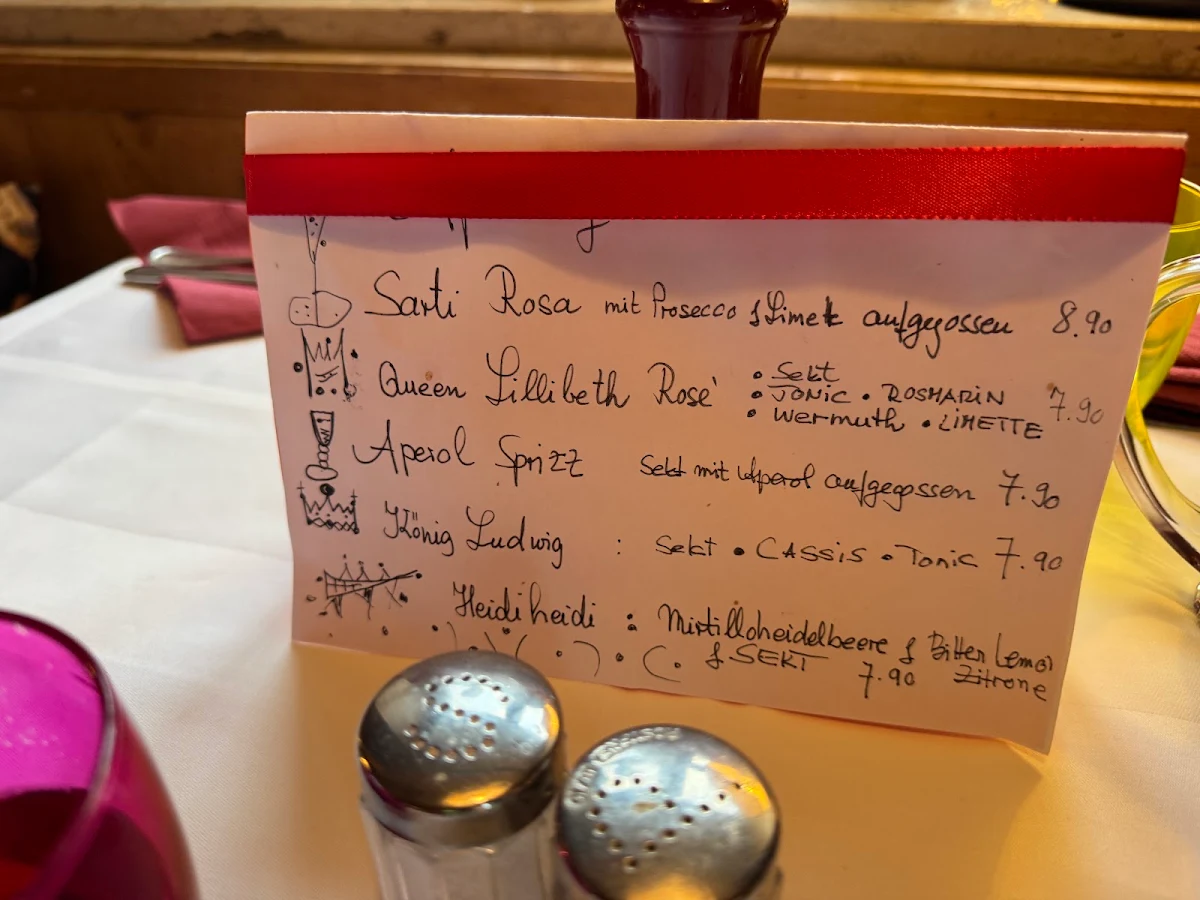 Sarti Rosa mit Prosecco & Limet aufgegossen 8.90
Queen Lillibeth Rosé • Sekt
• TONIC • ROSMARIN 7.90
• Wermuth • LIMETTE
Aperol Sprizz Sekt mit Aperol aufgegossen 7.90
König Ludwig : Sekt • CASSIS • Tonic 7.90
Heidiheidi : Mirtilloheidelbeere & Bitter Lemon
& SEKT 7.90 Zitrone